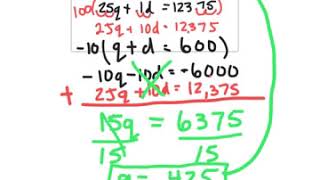 100(.25q + .1d = 123.75)
25q + 10d = 12,375
-10(q + d = 600)
-10q - 10d = -6000
+ 25q + 10d = 12,375
15q = 6375
15 15
q = 425